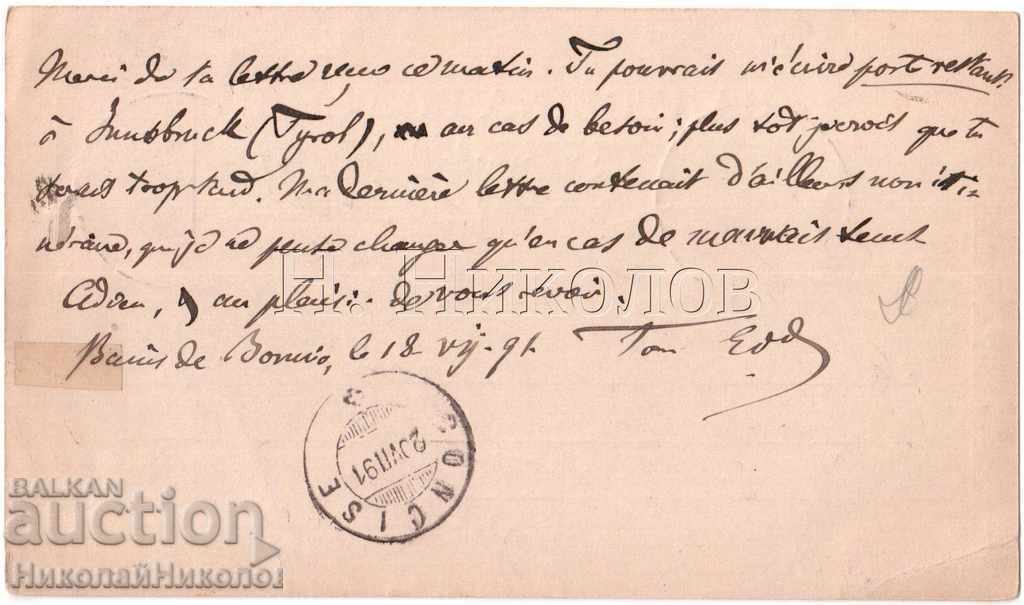 Merci de ta lettre reçue ce matin. Tu pourrais m'écrire poste restante
à Innsbruck (Tyrol), au cas de besoin; plus tôt je crois que tu
serais trop tard. Ma dernière lettre contenait d'ailleurs mon iti-
néraire, que je ne pense changer qu'en cas de mauvais temps
Adieu, au plaisir de vous revoir.
Bains de Bormio, le 18 VII. 91. Ton Edd
CONCISE
20 VII 91
Н. НИКОЛОВ
BALKAN
auction
НиколайНиколов